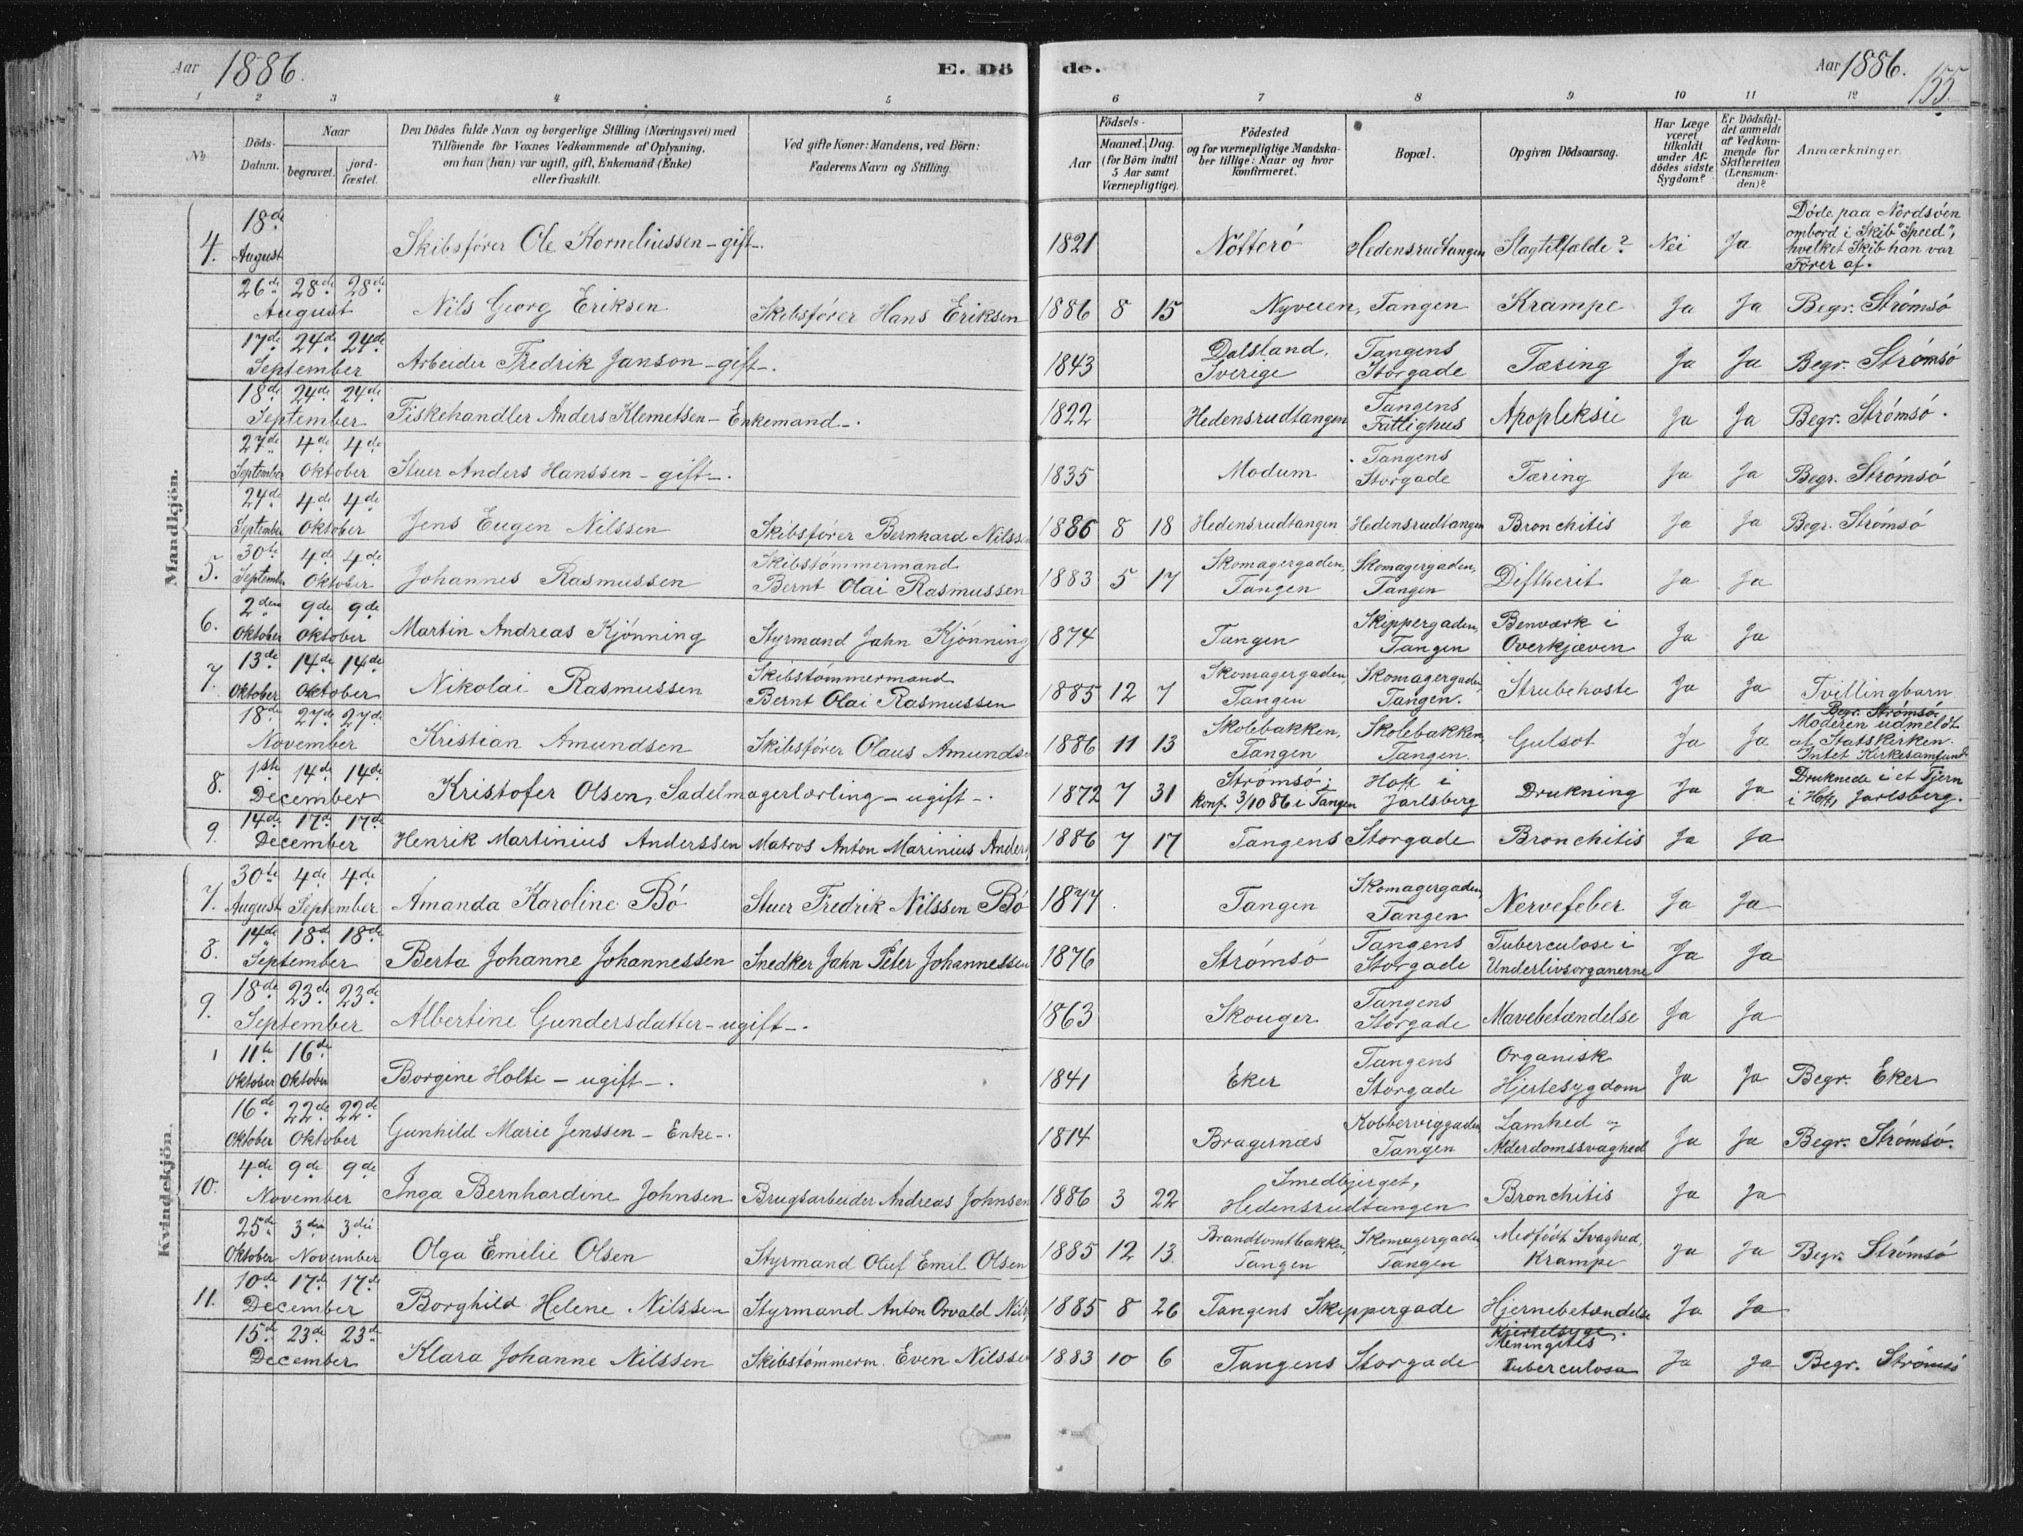 Aar 1886. E. Dö de. Aar 1886. 155.
1 2 3 4 5 6 7 8 9 10 11 12
No. Döds-Datum. Naar begravet. jordfæstet. Den Dödes fulde Navn og borgerlige Stilling (Næringsvei) med Tilföiende for Voxnes Vedkommende af Oplysning, om han (hun) var ugift, gift, Enkemand (Enke) eller fraskilt. Ved gifte Koner: Mandens, ved Börn: Faderens Navn og Stilling. Födsels- Aar Maaned. Dag. (for Börn indtil 5 Aar samt Værnepligtige). Födested og for værnepligtige Mandskaber tillige: Naar og hvor konfirmeret. Bopæl. Opgiven Dödsaarsag. Har Læge været tilkaldt under Afdödes sidste Sygdom? Er Dödsfaldet anmeldt af Vedkommende for Skifteretten (Lensmanden)? Anmærkninger.
Mandkjön.
4. 18de August Skibsfører Ole Korneliussen - gift -. 1821 Nötterö Hedensrudtangen Slagtilfælde? Nei Ja Døde paa Nordsöen ombord i Skib "Speed", hvilket Skib han var Fører af.
26de 28de 28de August Nils Georg Eriksen Skibsfører Hans Eriksen 1886 8 15 Nyveien, Tangen Krampe Ja Ja Begr. Strømsö
17de 24de 24de September Arbeider Fredrik Janson - gift -. 1843 Dalsland, Sverige Tangens Storgade Tæring Ja Ja Begr. Strømsö
18de 24de 24de September Fiskehandler Anders Klemetsen - Enkemand -. 1822 Hedensrudtangen Tangens Fattighus Apopleksie Ja Ja Begr. Strømsö.
27de September 4de 4de Oktober Stuer Anders Hanssen - gift -. 1835 Modum Tangens Storgade Tæring Ja Ja Begr. Strømsö
24de September 4de 4de Oktober Jens Eugen Nilssen Skibsfører Bernhard Nilssen 1886 8 18 Hedensrudtangen Hedensrudtangen Bronchitis Ja Ja Begr. Strømsö
5. 30te September 4de 4de Oktober Johannes Rasmussen Skibstømmermand Bernt Olai Rasmussen 1883 5 17 Skomagergaden, Tangen Skomagergaden, Tangen Diftherit Ja Ja
6. 2den Oktober 9de 9de Oktober Martin Andreas Kjønning Styrmand Jahn Kjønning 1874 Tangen Skippergaden, Tangen Benværk i Overkjæven Ja Ja
7. 13de Oktober 14de 14de Oktober Nikolai Rasmussen Skibstømmermand Bernt Olai Rasmussen 1885 12 7 Skomagergaden, Tangen Skomagergaden, Tangen. Strubehoste Ja Ja Tvillingbarn
18de 27de 27de November Kristian Amundsen Skibsfører Olaus Amundsen 1886 11 13 Skolebakken, Tangen Skolebakken, Tangen. Gulsot Ja Ja Begr. Strømsö. Moderen udmeldt af Statskirken. Intet Kirkesamfund
8. 1ste 14de 14de December Kristofer Olsen, Sadelmagerlærling - ugift -. 1872 7 31 Strømsö; konf. 3/10 86 i Tangen Hof i Jarlsberg Drukning Ja Ja Druknede i et Tjern i Hof, Jarlsberg.
9. 14de 17de 17de December Henrik Martinius Anderssen Matros Anton Marinius Anders 1886 7 17 Tangens Storgade Bronchitis Ja Ja
Kvindekjön.
7. 30te August 4de 4de September Amanda Karoline Bö Stuer Fredrik Nilssen Bö 1877 Tangen Skomagergaden, Tangen Nervefeber Ja Ja
8. 14de 18de 18de September Berta Johanne Johannessen Snedker Jahn Peter Johannessen 1876 Strømsö Tangens Storgade Tuberculose i Underlivsorganerne Ja Ja
9. 18de 23de 23de September Albertine Gundersdatter - ugift -. 1863 Skouger Tangens Storgade Mavebetændelse Ja Ja
11te Oktober 16de Oktober Borgine Holte - ugift -. 1841 Eker Tangens Storgade Organisk Hjertesygdom Ja Ja Begr. Eker
16de Oktober 22de 22de Oktober Gunhild Marie Jenssen - Enke -. 1814 Bragernæs Kobberviggaden Tangen Lamhed og Alderdomssvaghed Ja Ja Begr. Strømsö.
10. 4de 9de 9de November Inga Bernhardine Johnsen Brugsarbeider Andreas Johnsen 1886 3 22 Smedbjerget, Hedensrudtangen Bronchitis Ja Ja
25de Oktober 3die 3die November Olga Emilie Olsen Styrmand Oluf Emil Olsen 1885 12 13. Brandtomtbakken, Tangen Skomagergaden Tangen Medfødt Svaghed, Krampe Ja Ja Begr. Strømsö
11. 10de 17de 17de December Borghild Helene Nilssen Styrmand Anton Osvald Nils 1885 8 26 Tangens Skippergade Hjernebetændelse Ja Ja
15de 23de 23de December Klara Johanne Nilssen Skibstømmerm. Even Nilssen 1883 10 6 Tangens Storgade Kjertelsyge. Meningitis Tuberculosa Ja Ja Begr. Strømsö